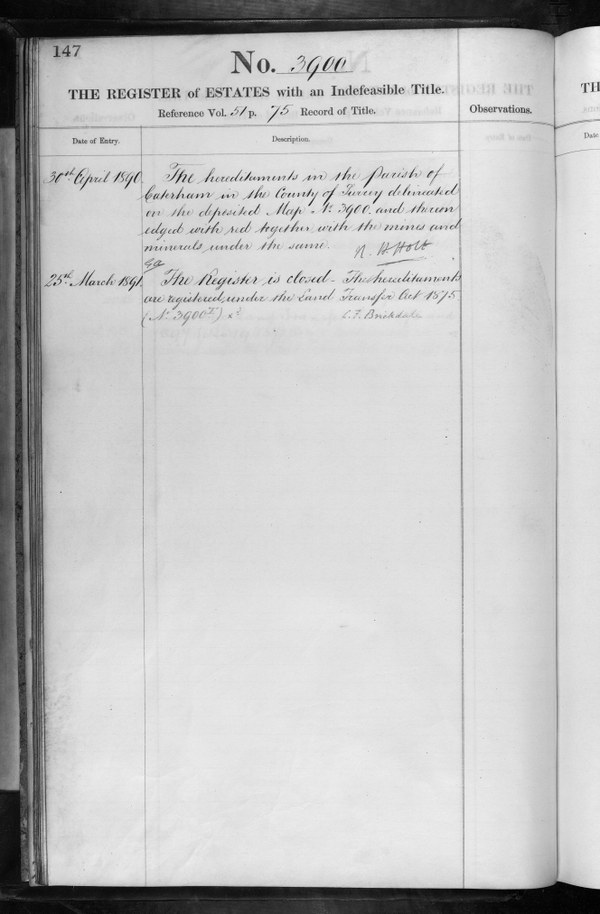 147
No. 3900
THE REGISTER of ESTATES with an Indefeasible Title.
Reference Vol. 51 p. 75 Record of Title.
Observations.
Date of Entry.
Description.
30th April 1890.
The hereditaments in the Parish of
Caterham in the County of Surrey delineated
on the deposited Map No. 3900. and thereon
edged with red together with the mines and
minerals under the same.
R. H. Holt
25th March 1891.
The Register is closed. The hereditaments
are registered under the Land Transfer Act 1875
(No. 3900
C. F. Brickdale
TH
Date